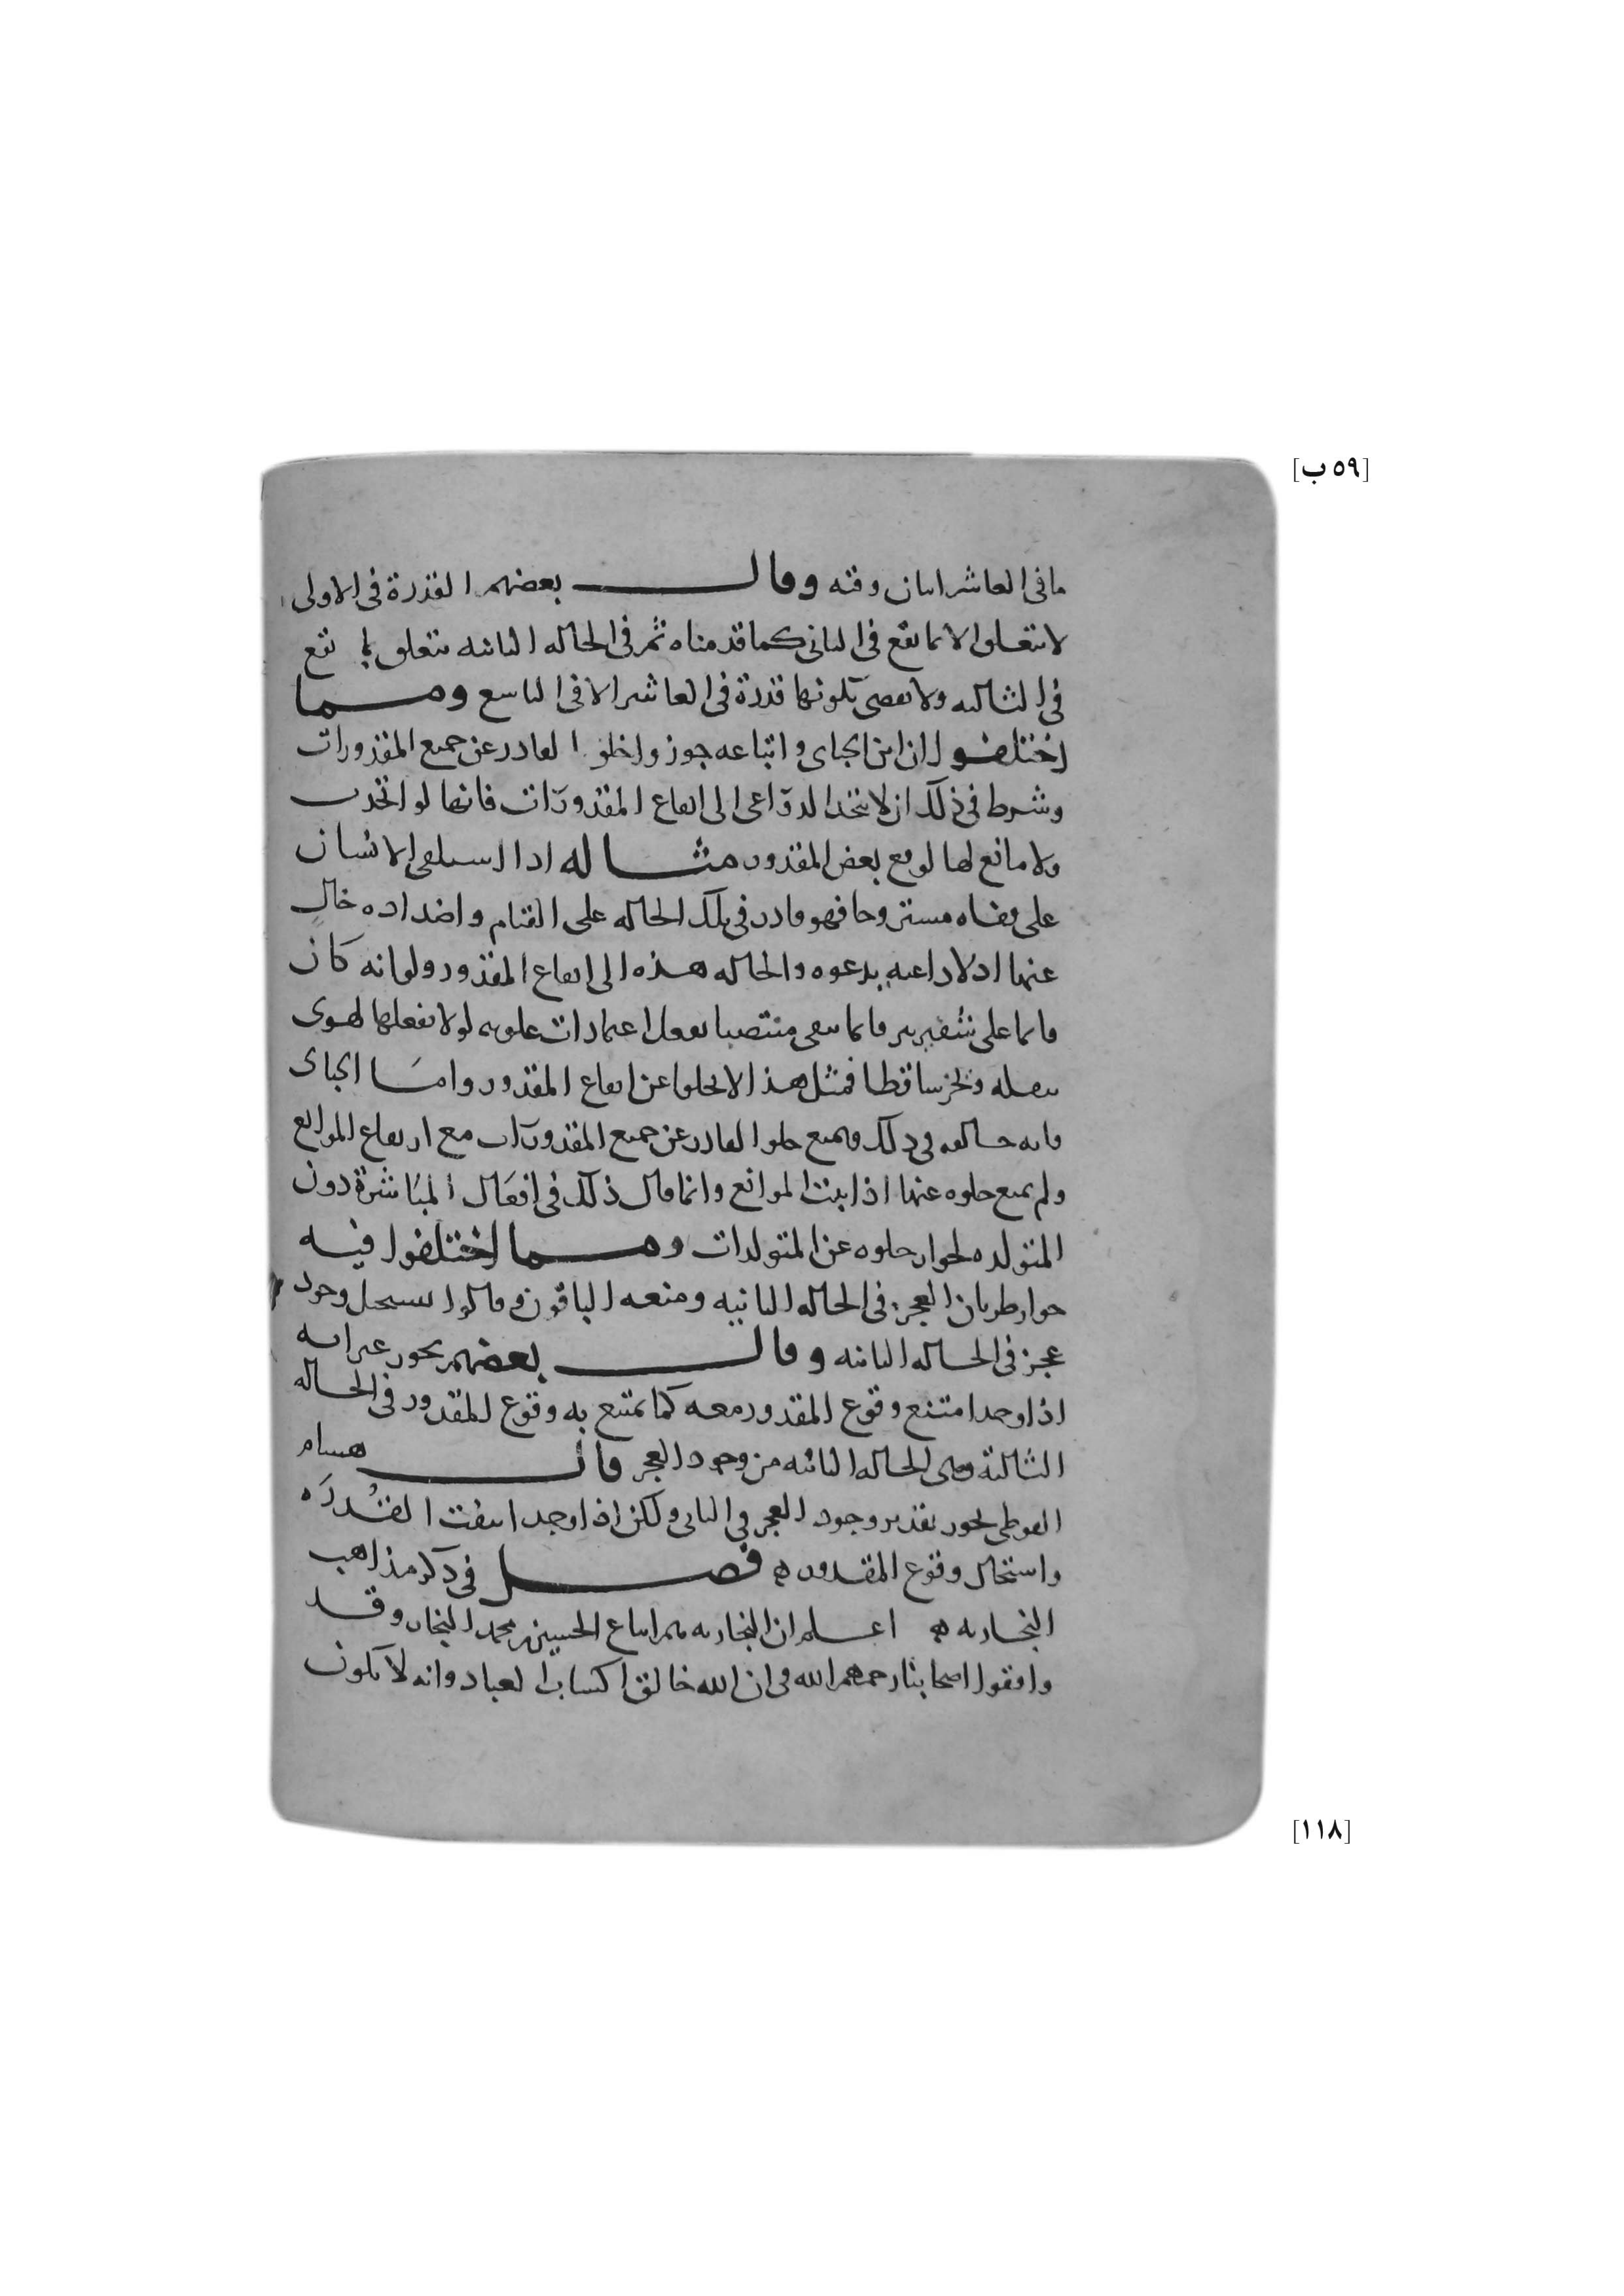 [٥٩ ب]
ما في العاشر ابان وقته وقال بعضهم القدرة في الاولى
لا تتعلق الا بما يقع في الثاني كما قدمناه ثم في الحاله الثانيه تتعلق بما تقع
في الثالثه ولا تكونها قدرة في العاشر الا في التاسع ومما
اختلفوا ان ابن الجباى واتباعه جوزوا خلو القادر عن جميع المقدورات
وشرط في ذلك ان لا تتخذ الدواعى الى ايقاع المقدورات فانها لو اتخذت
ولا مانع لها لوقع بعض المقدور مثاله اذا استلقى الانسان
على قفاه مستروحا فهو قادر في تلك الحاله على القيام واضداده خال
عنها اذ لا داعيه يدعوه والحاله هذه الى ايقاع المقدور ولو انه كان
قائما على شفير بير فانما يبقى منتصبا بفعل اعتمادات علويه لو لا يفعلها لهوى
بثقله ويخر ساقطا فمثل هذا لا يخلوا عن ايقاع المقدور وامّا الجباى
فانه خالفه في ذلك فيمنع خلو القادر عن جميع المقدورات مع ارتفاع الموانع
ولم يمنع خلوه عنها اذا ثبتت الموانع وانما قال ذلك في افعال المباشرة دون
المتولده لجواز خلوه عن المتولدات ومما اختلفوا فيه
جواز طريان العجز في الحاله الثانيه ومنعه الباقون وقالوا يستحيل وجود
عجز في الحاله الثانيه وقال بعضهم يجوز غير انه
اذا وجد امتنع وقوع المقدور معه كما يمتنع به وقوع المقدور في الحاله
الثالثة وفى الحاله الثانيه من وجود العجز قال هشام
الفوطى يجوز تقدير وجود العجز في الثانى ولكن اذا وجد انتفت القدره
واستحال وقوع المقدور ه فصل في ذكر مذاهب
النجاريه ه اعلم ان النجاريه هم اتباع الحسين بن محمد النجار وقد
وافقوا اصحابنا رحمهم الله في ان الله خالق اكساب العباد وانه لا يكون
[١١٨]